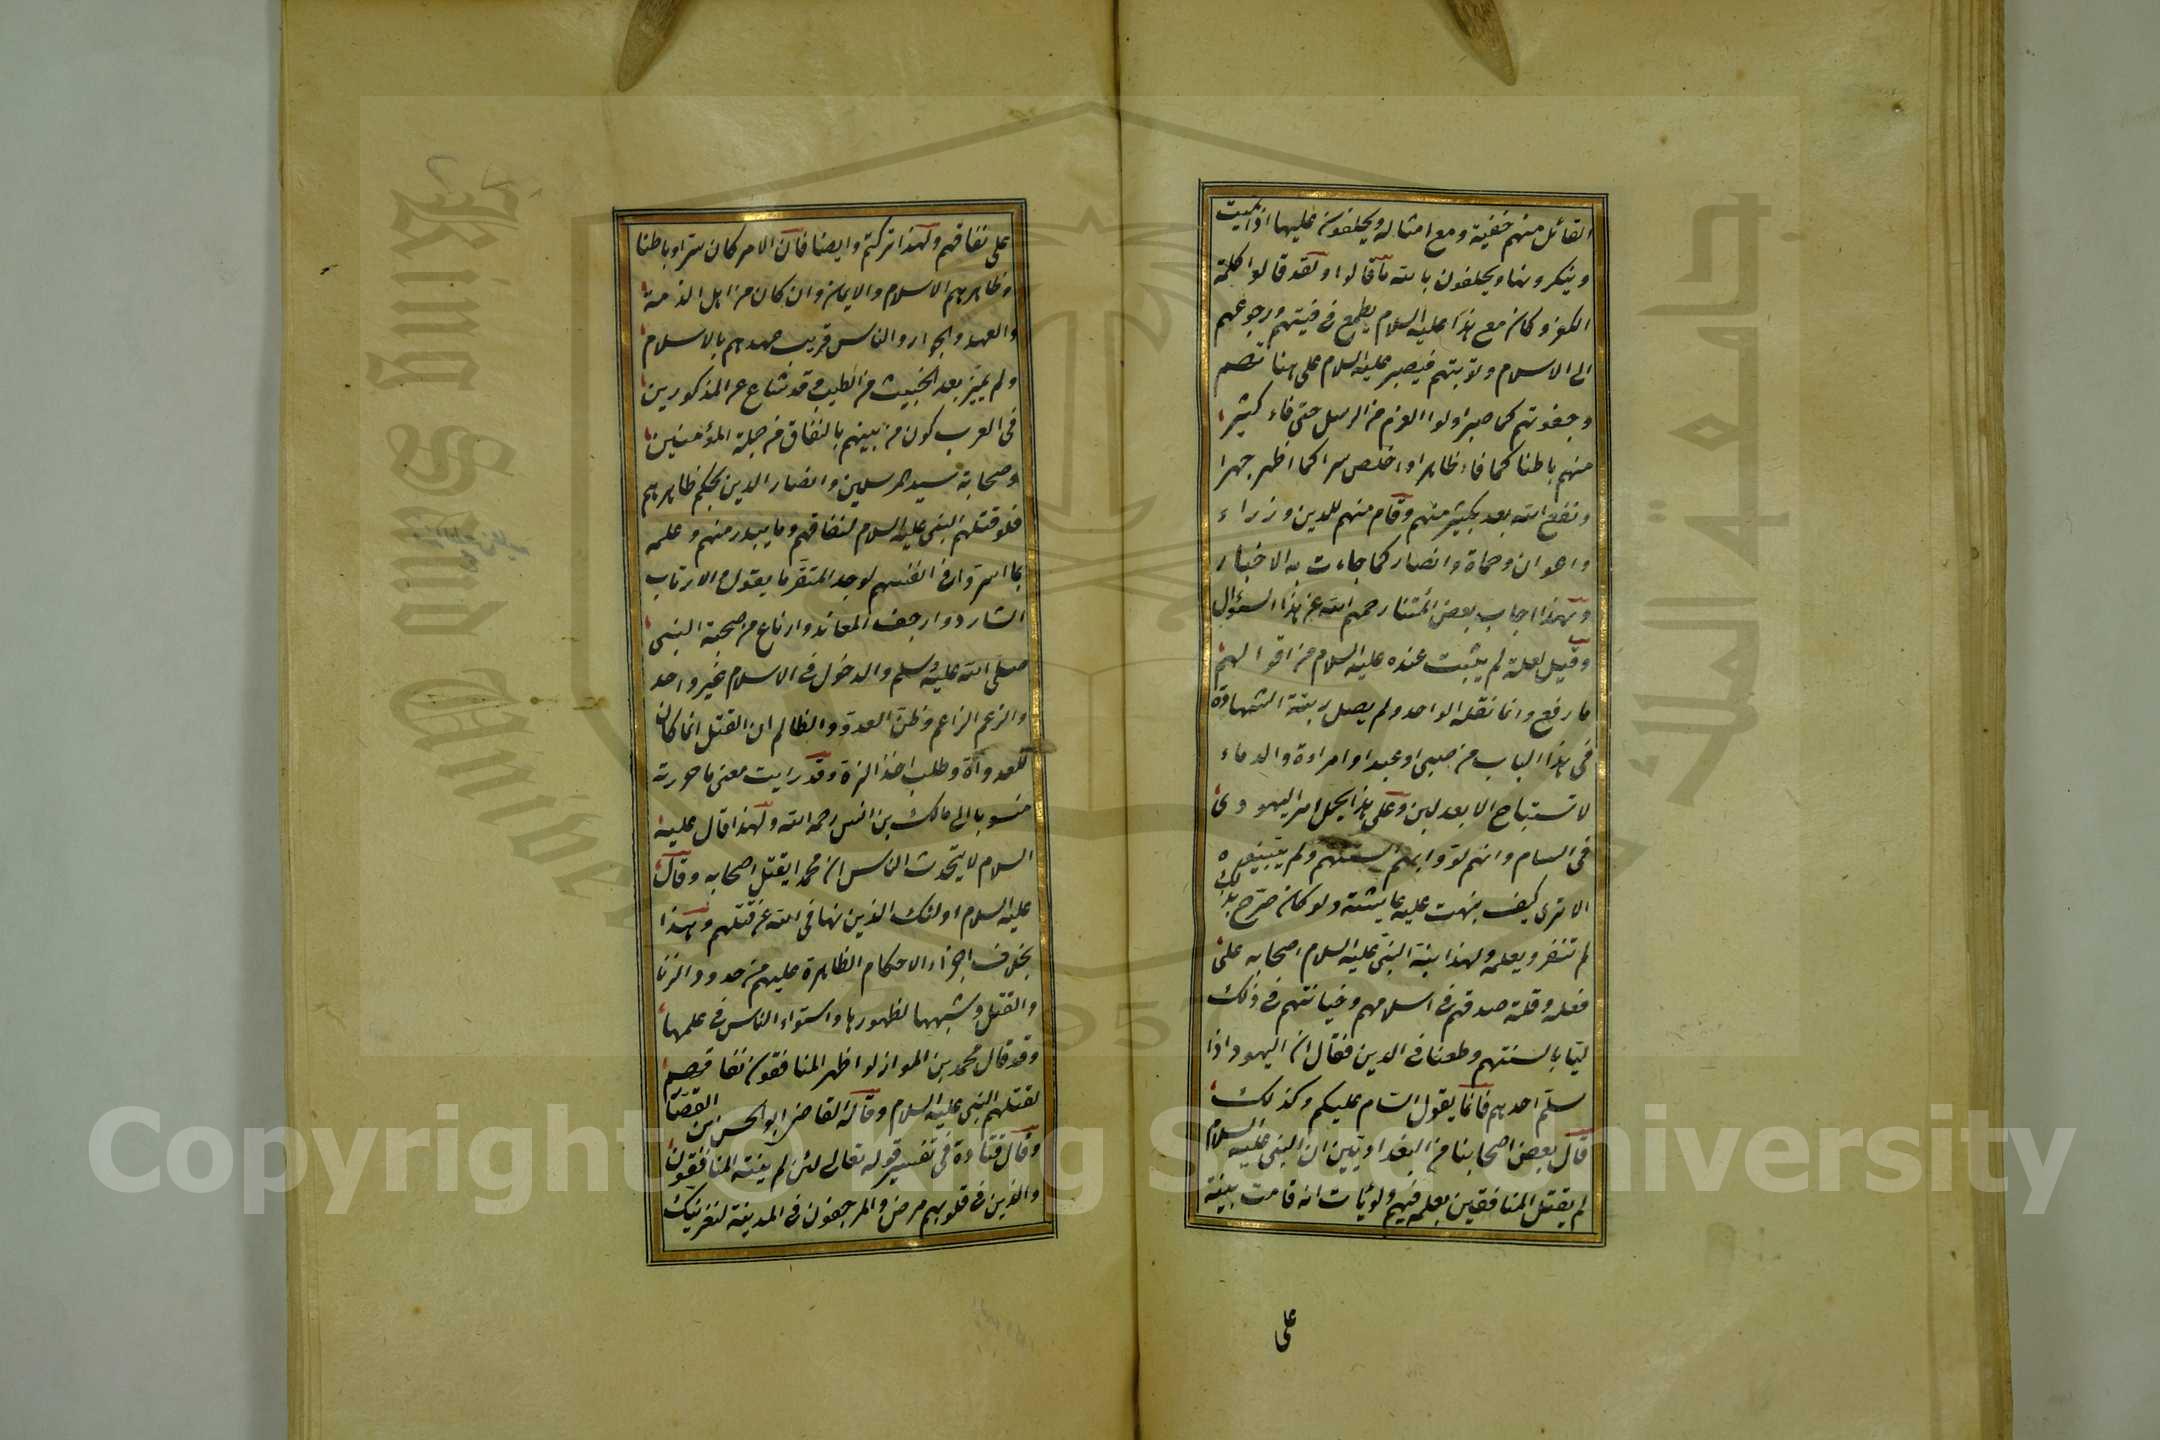 القائل منهم خفية ومع امثاله ويحلفون عليها اذا نميت
وينكرونها ويحلفون بالله ما قالوا ولقد قالوا كلمة
الكفر وكان مع هذا عليه السلام يطمع في فيئتهم ورجوعهم
الى الاسلام وتوبتهم فيصبر عليه السلام على هناتهم
وجفوتهم كما صبر اولوا العزم من الرسل حتى فاء كثير
منهم باطنا كما فاء ظاهرا واخلص سرا كما اظهر جهرا
ونفع الله بعد بكثير منهم وقام منهم للدين وزراء
واعوان وحماة وانصار كما جاءت به الاخبار
وبهذا اجاب بعض ائمتنا رحمهم الله عن هذا السؤال
وقيل لعله لم يثبت عنده عليه السلام من اقوالهم
ما رفع وانما نقله الواحد ولم يصل رتبة الشهادة
في هذا الباب من صبي او عبد او امراءة والدماء
لا تستباح الا بعدلين وعلى هذا يحمل امر اليهودى
في السلام وانهم لووا به السنتهم ولم يبينوه
الا ترى كيف نبهت عليه عايشة ولو كان صرح بذلك
لم تنفرد بعلمه ولهذا نبه النبي عليه السلام اصحابه على
فعله وقلة صدقهم في اسلامهم وخيانتهم في ذلك
ليا بالسنتهم وطعنا في الدين فقال ان اليهود اذا
سلم احدهم فانما يقول السام عليكم وكذلك
قال بعض اصحابنا من البغداديين ان النبي عليه السلام
لم يقتل المنافقين بعلمه فيهم ولم يات انه قامت بينة
على
على نفاقهم ولهذا تركهم وايضا فان الامر كان سرا وباطنا
وظاهرهم الاسلام والايمان وان كان من اهل الذمة
والعهد والجوار والناس قريب عهدهم بالاسلام
ولم يميز بعد الخبيث من الطيب وقد شاع عن المذكورين
في العرب كون من يتهم بالنفاق من جملة المؤمنين
وصحابة سيد المرسلين وانصار الدين بحكم ظاهرهم
فلو قتلهم النبي عليه السلام لنفاقهم وما يبدر منهم وعلمه
بما اسروا في انفسهم لوجد المنفر ما يقول ولارتاب
الشارد وارجف المعاند وارتاع من صحبة النبي
صلى الله عليه وسلم والدخول في الاسلام غير واحد
والزعم الزاعم وظن العدو والظالم ان القتل انما كان
للعداوة وطلب اخذ الترة وقد رايت معنى ما حررته
منسوبا الى مالك بن انس رحمه الله ولهذا قال عليه
السلام لا يتحدث الناس ان محمدا يقتل اصحابه وقال
عليه السلام اولئك الذين نهاني الله عن قتلهم وهذا
بخلاف اجراء الاحكام الظاهرة عليهم من حدود الزنا
والقتل وشبهها لظهورها واستواء الناس في علمها
وقد قال محمد بن المواز لو اظهر المنافقون نفاقهم
لقتلهم النبي عليه السلام وقاله القاضي ابو الحسن ابن القصار
وقال قتادة في تفسير قوله تعالى لئن لم ينته المنافقون
والذين في قلوبهم مرض والمرجفون في المدينة لنغرينك
Copyright © King Saud University
King Saud University
جامعة الملك سعود